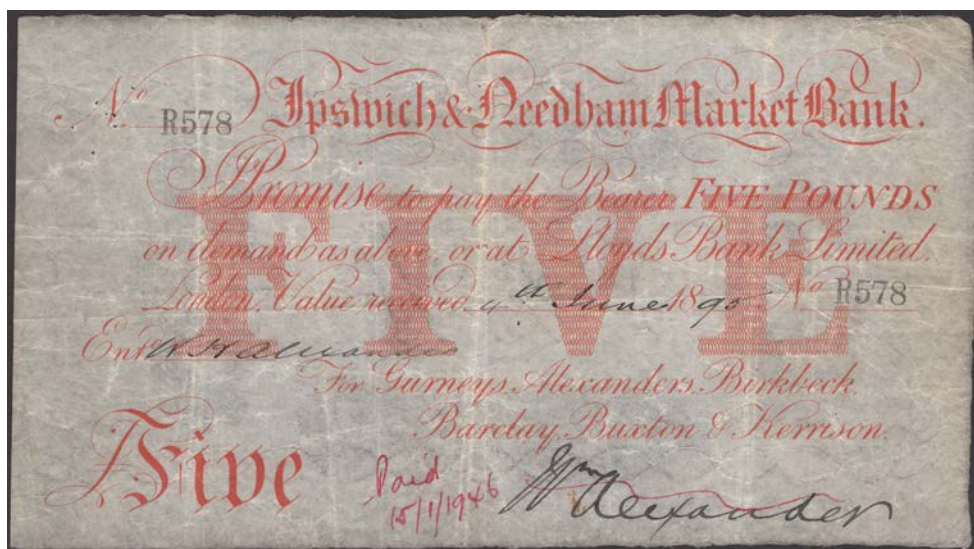 No R578 Ipswich & Needham Market Bank.
I Promise to pay the Bearer FIVE POUNDS
on demand as above, or at Lloyds Bank Limited,
London, Value received 4th June 1890 No R578
FIVE
Entd W H Alexander
For Gurneys, Alexanders, Birkbeck,
Barclay, Buxton & Kerrison.
Five
Paid
15/1/1946
Wm Alexander